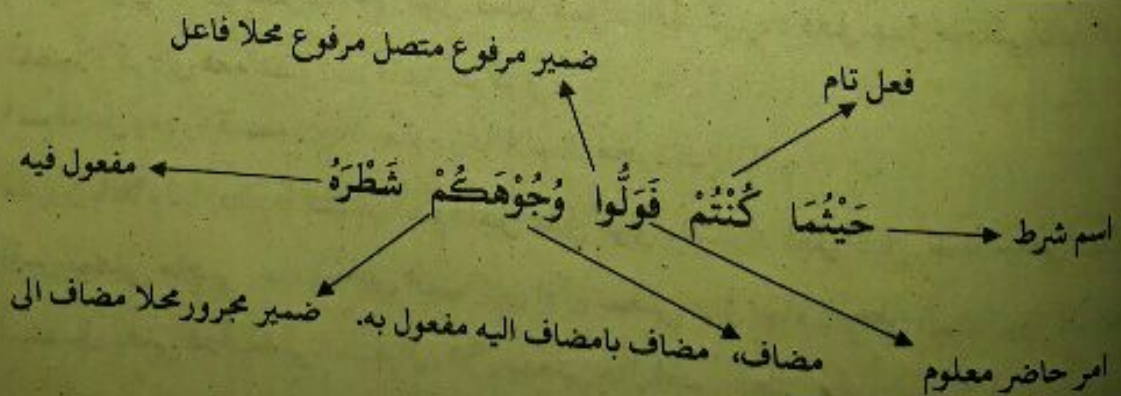 ضمير مرفوع متصل مرفوع محلا فاعل
فعل تام
حَيْثُمَا كُنْتُمْ فَوَلُّوا وُجُوْهَكُمْ شَطْرَهُ
اسم شرط
مفعول فيه
ضمير مجرور محلا مضاف الى
مضاف، مضاف بامضاف اليه مفعول به.
امر حاضر معلوم